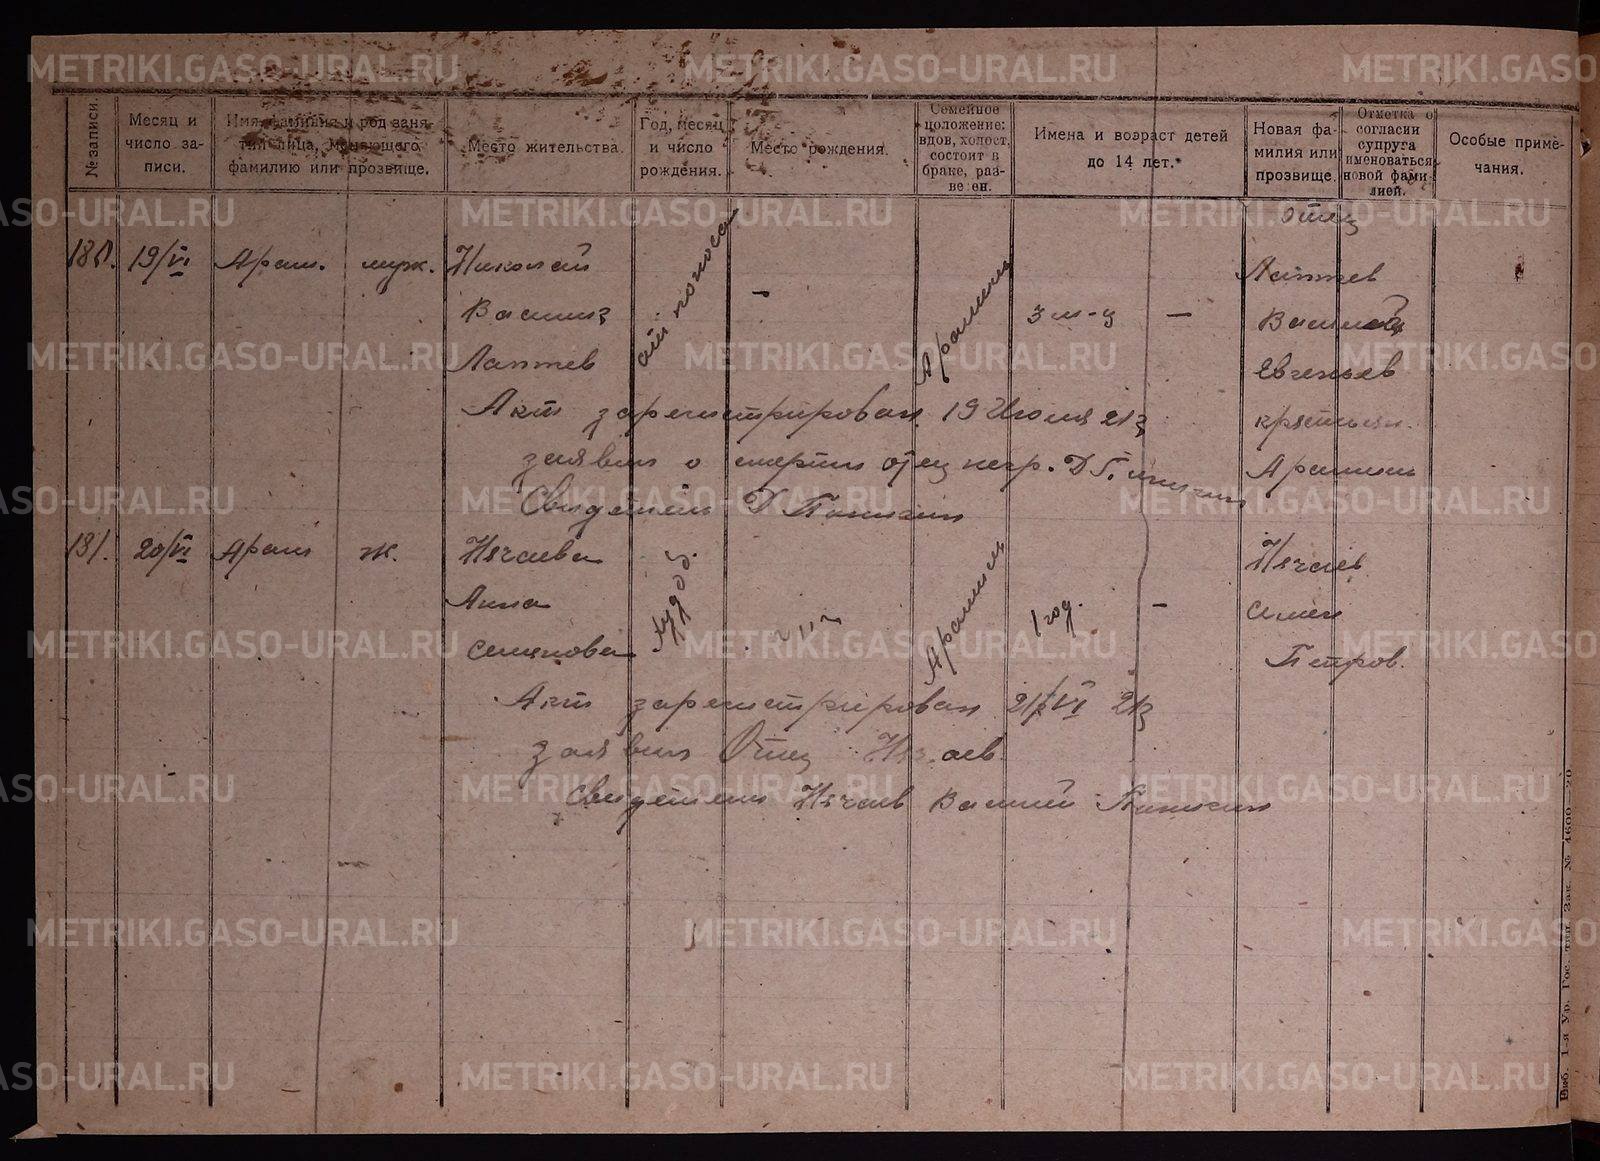 № записи.
Месяц и число записи.
Имя, фамилия и род занятий лица, меняющего фамилию или прозвище.
Место жительства.
Год, месяц и число рождения.
Место рождения.
Семейное положение: вдов, холост, состоит в браке, разведен.
Имена и возраст детей до 14 лет.
Новая фамилия или прозвище.
Отметка о согласии супруга именоваться новой фамилией.
Особые примечания.
отец
180. 19/VI Арам. муж. Николай от поноса — Арамиль 3 м-ц — Лаптев
Васил Василий
Лаптев Евгеньев
Акт зарегистрирован 19 Июня 21 г крестьян.
заявил о смерти отец негр. Арамиль
Свидетель
181. 20/VI Арам ж. Нечаева худоб. Арамиль 1 год. — Нечаев
Анна Семен
Семенова Петров.
Акт зарегистрирован 21/VI 21 г
заявил Отец Нечаев
Свидетель Нечаев Василий
1-я Ур. Гос. тип. Зак. № 4600—20
METRIKI.GASO-URAL.RU